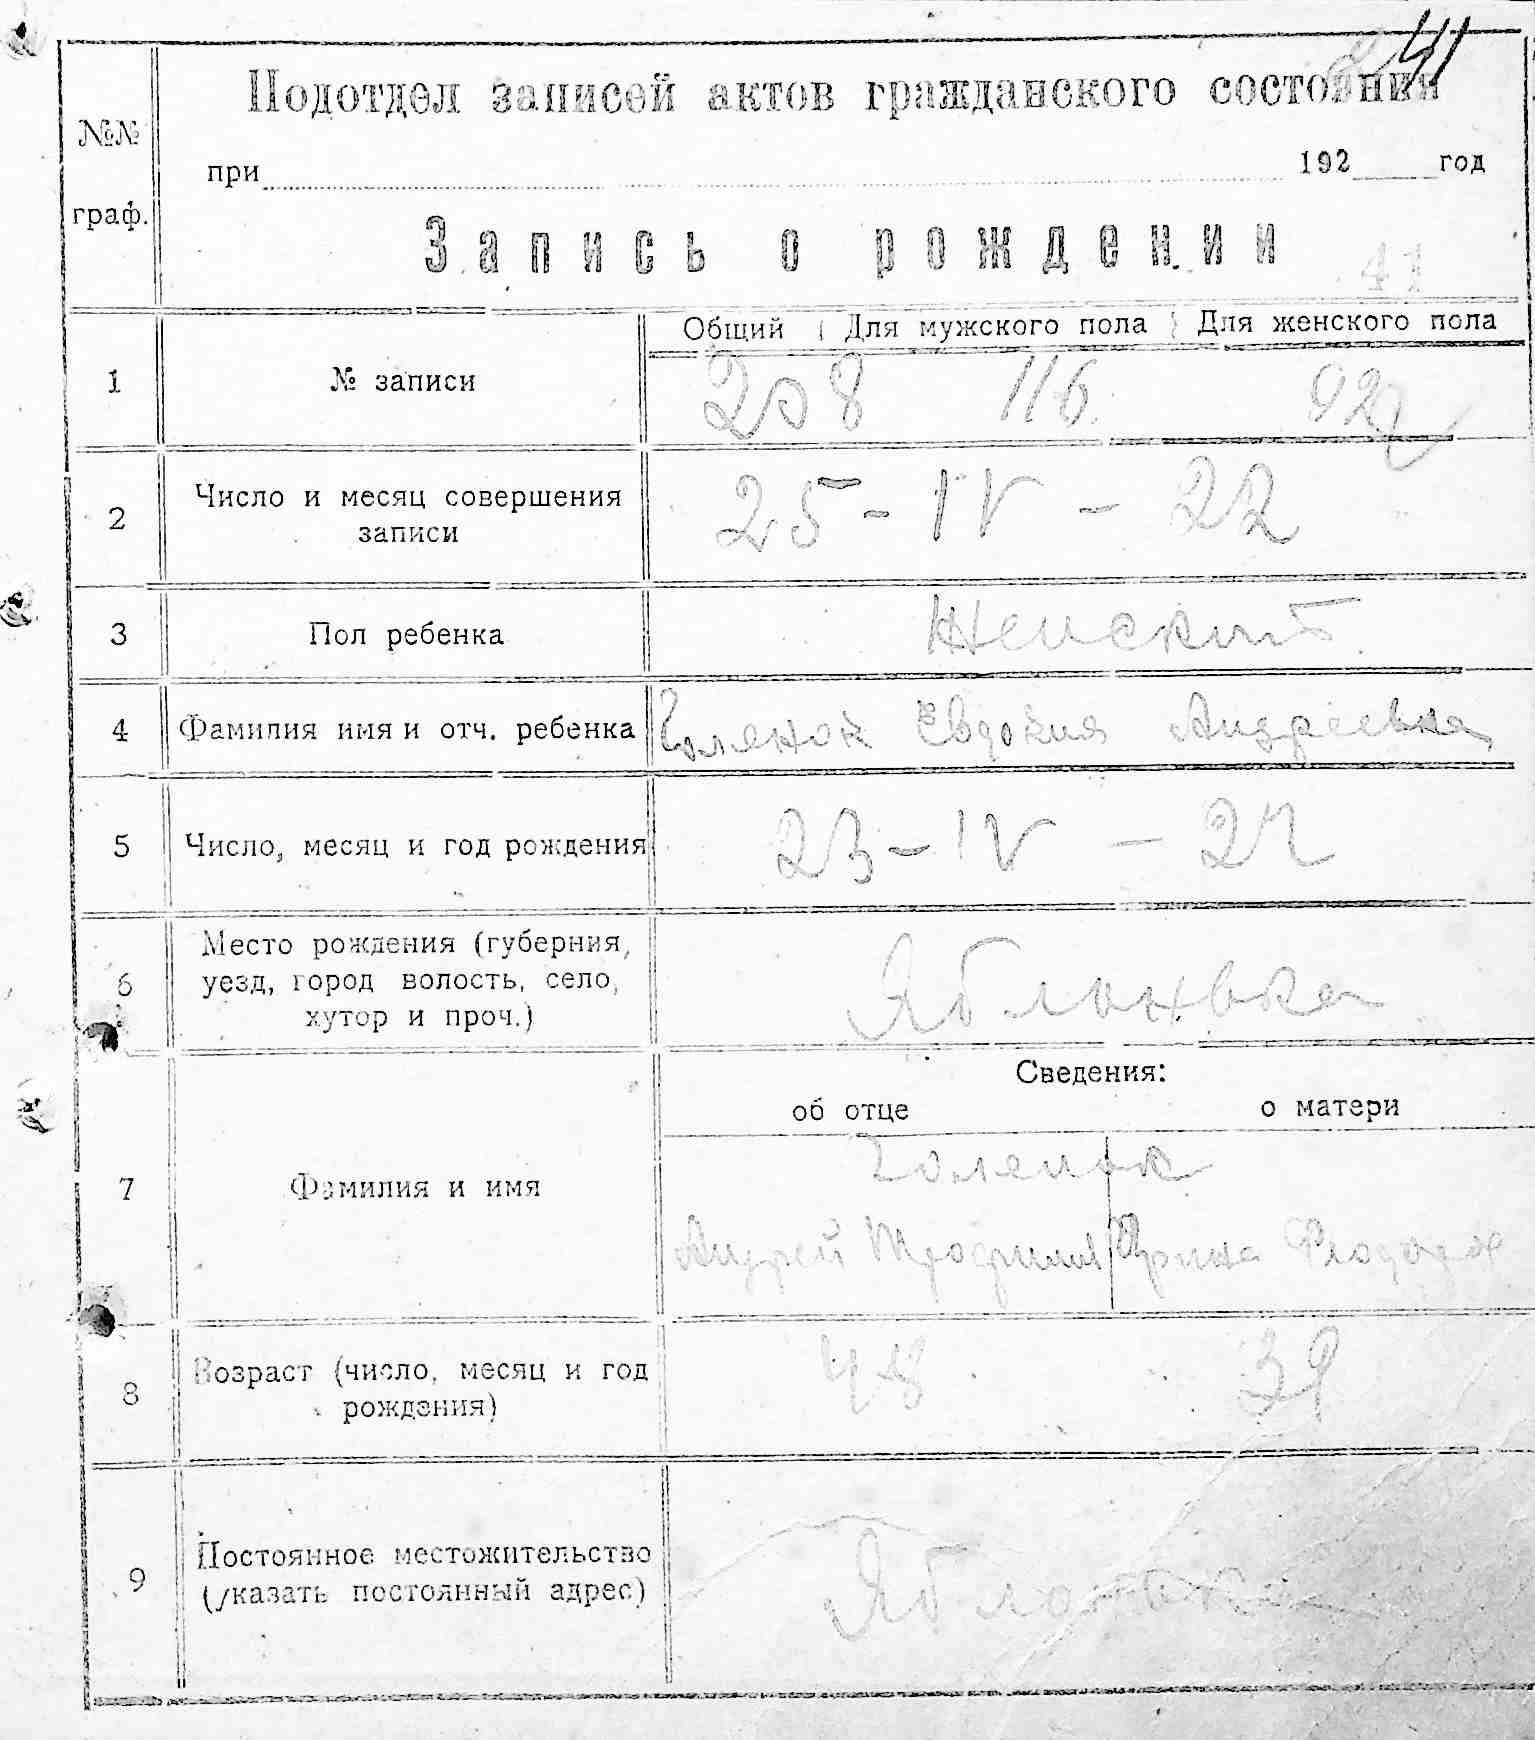 41
Подотдел записей актов гражданского состояния
№№
граф.
при 192 год
Запись о рождении
41
Общий Для мужского пола Для женского пола
1 № записи 208 116 92
2 Число и месяц совершения
записи
25-IV-22
3 Пол ребенка Женский
4 Фамилия имя и отч. ребенка Голенок Евдокия Андреевна
5 Число, месяц и год рождения 23-IV-22
6 Место рождения (губерния,
уезд, город волость, село,
хутор и проч.)
Яблоновка
Сведения:
об отце о матери
7 Фамилия и имя
Голенок
Андрей Трофимов Ирина Феодоров
8 Возраст (число, месяц и год
рождения)
48 39
9 Постоянное местожительство
(указать постоянный адрес)
Яблоновка